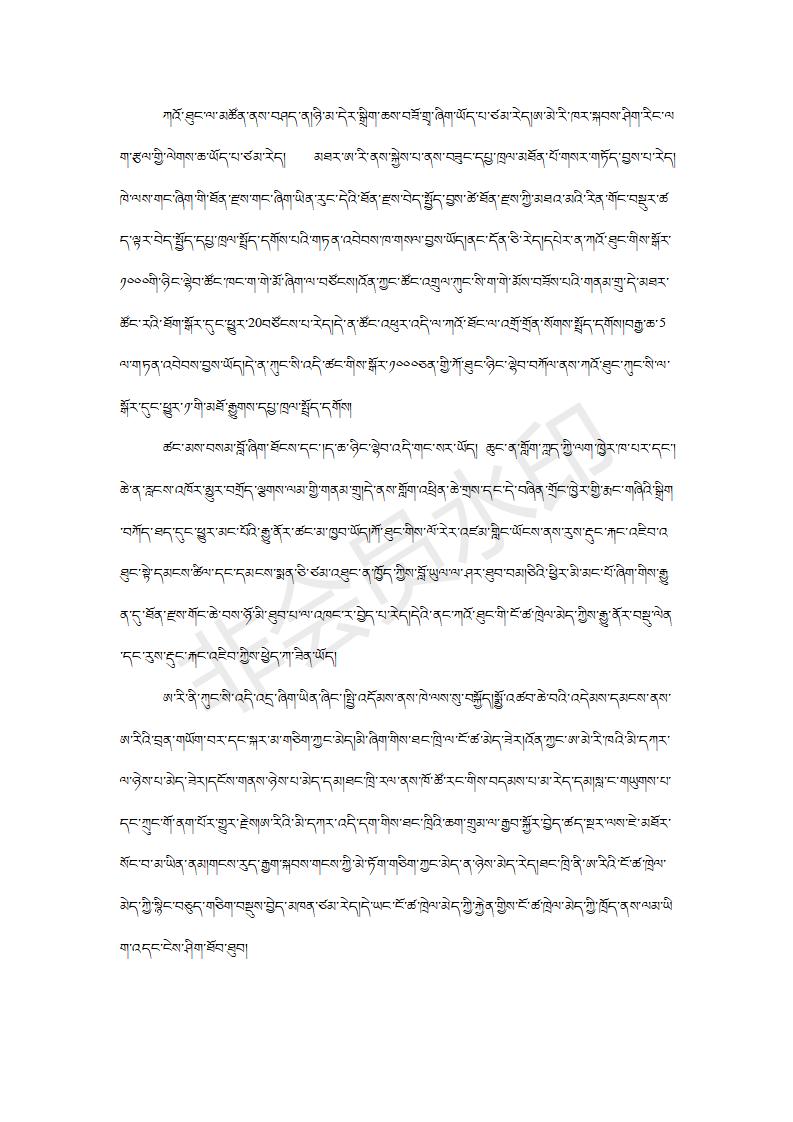 ཀའོ་ཐུང་ལ་མཚོན་ནས་བཤད་ན།ཉི་མ་དེར་སྒྲིག་ཆས་བཟོ་གྲྭ་ཞིག་ཡོད་པ་ཙམ་རེད།ཨ་མེ་རི་ཁར་སྐབས་ཤིག་རིང་ལ
ག་རྩལ་གྱི་ལེགས་ཆ་ཡོད་པ་ཙམ་རེད། མཐར་ཨ་རི་ནས་སྐྱེས་པ་ནས་བཟུང་དཔྱ་ཁྲལ་མཐོན་པོ་གསར་གཏོད་བྱས་པ་རེད།
ཁེ་ལས་གང་ཞིག་གི་ཐོན་རྫས་གང་ཞིག་ཡིན་རུང་དེའི་ཐོན་རྫས་བེད་སྤྱོད་བྱས་ཚེ་ཐོན་རྫས་ཀྱི་མཐའ་མའི་རིན་གོང་བསྡུར་ཚ
ད་ལྟར་བེད་སྤྱོད་དཔྱ་ཁྲལ་སྤྲོད་དགོས་པའི་གཏན་འབེབས་ཁ་གསལ་བྱས་ཡོད།ནང་དོན་ཅི་རེད།དཔེར་ན་ཀའོ་ཐུང་གིས་སྒོར་
༡༠༠༠གི་ཉིང་ལྷེབ་ཚོང་ཁང་ག་གེ་མོ་ཞིག་ལ་བཙོངས།འོན་ཀྱང་ཚོང་འགྲུལ་ཀུང་སི་ག་གེ་མོས་བཟོས་པའི་གནམ་གྲུ་དེ་མཐར་
ཚོང་རའི་ཐོག་སྒོར་དུང་ཕྱུར་20བཙོངས་པ་རེད།དེ་ན་ཚོང་འཕུར་འདི་ལ་ཀའོ་ཐོང་ལ་འགྲོ་གྲོན་སོགས་སྤྲོད་དགོས།བརྒྱ་ཆ་5
ལ་གཏན་འབེབས་བྱས་ཡོད།དེ་ན་ཀུང་སི་འདི་ཚང་གིས་སྒོར་༡༠༠༠ཅན་གྱི་ཀོ་ཐུང་ཉིང་ལྷེབ་བཀོལ་ནས་ཀའོ་ཐུང་ཀུང་སི་ལ་
སྒོར་དུང་ཕྱུར་༡་གི་མཐོ་རྒྱུགས་དཔྱ་ཁྲལ་སྤྲོད་དགོས།
ཚང་མས་བསམ་བློ་ཞིག་ཐོངས་དང་།ད་ཆ་ཉིང་ལྷེབ་འདི་གང་སར་ཡོད། ཆུང་ན་གློག་ཀླད་ཀྱི་ལག་ཁྱེར་ཁ་པར་དང་།
ཆེ་ན་རླངས་འཁོར་མྱུར་བགྲོད་ལྕགས་ལམ་གྱི་གནམ་གྲུ།དེ་ནས་གློག་འཕྲིན་ཆེ་གྲས་དང་དེ་བཞིན་གྲོང་ཁྱེར་གྱི་རྨང་གཞིའི་སྒྲིག
་བཀོད་ཐད་དུང་ཕྱུར་མང་པོའི་རྒྱུ་ནོར་ཚང་མ་ཁྱབ་ཡོད།ཀོ་ཐུང་གིས་ལོ་རེར་འཛམ་གླིང་ཡོངས་ནས་རུས་རྡུང་རྐང་འཇིབ་འ
ཐུང་སྟེ་དམངས་ཚིལ་དང་དམངས་སྨན་ཅི་ཙམ་འཐུང་ན་ཁྱོད་ཀྱིས་བློ་ཡུལ་ལ་ཤར་ཐུབ་བམ།ཅིའི་ཕྱིར་མི་མང་པོ་ཞིག་གིས་རྒྱུ
ན་དུ་ཐོན་རྫས་གོང་ཆེ་བས་ཉོ་མི་ཐུབ་པ་ལ་འཁང་ར་བྱེད་པ་རེད།དེའི་ནང་ཀའོ་ཐུང་གི་ངོ་ཚ་ཁྲེལ་མེད་ཀྱིས་རྒྱུ་ནོར་བསྡུ་ལེན
་དང་རུས་རྡུང་རྐང་འཇིབ་ཀྱིས་ཕྱེད་ཀ་ཟིན་ཡོད།
ཨ་རི་ནི་ཀུང་སི་འདི་འདྲ་ཞིག་ཡིན་ཞིང་།སྤྱི་འདོམས་ནས་ཁེ་ལས་སུ་བསྐྱོད།སྨྱོ་འཚབ་ཆེ་བའི་འདེམས་དམངས་ནས་
ཨ་རིའི་བྲན་གཡོག་བར་དང་སྐར་མ་གཅིག་ཀྱང་མེད།མི་ཞིག་གིས་ཐང་ཁྲི་ལ་ངོ་ཚ་མེད་ཟེར།འོན་ཀྱང་ཨ་མེ་རི་ཁའི་མི་དཀར་
ལ་ཉེས་པ་མེད་ཟེར།དངོས་གནས་ཉེས་པ་མེད་དམ།ཐང་ཁྲི་རལ་ནས་ཁོ་ཚོ་རང་གིས་བདམས་པ་མ་རེད་དམ།སླ་ང་གཡུགས་པ་
དང་ཀྲུང་གོ་ནག་པོར་གྱུར་རྗེས།ཨ་རིའི་མི་དཀར་འདི་དག་གིས་ཐང་ཁྲིའི་ཆག་གྲུམ་ལ་རྒྱབ་སྐྱོར་བྱེད་ཚད་སྔར་ལས་ཇེ་མཐོར་
སོང་བ་མ་ཡིན་ནམ།གངས་རུད་རྒྱག་སྐབས་གངས་ཀྱི་མེ་ཏོག་གཅིག་ཀྱང་མེད་ན་ཉེས་མེད་རེད།ཐང་ཁྲི་ནི་ཨ་རིའི་ངོ་ཚ་ཁྲེལ་
མེད་ཀྱི་སྙིང་བཅུད་གཅིག་བསྡུས་བྱེད་མཁན་ཙམ་རེད།དེ་ཡང་ངོ་ཚ་ཁྲེལ་མེད་ཀྱི་རྐྱེན་གྱིས་ངོ་ཚ་ཁྲེལ་མེད་ཀྱི་ཁྲོད་ནས་ལམ་ཡི
ག་འདང་ངེས་ཤིག་ཐོབ་ཐུབ།
非会员水印